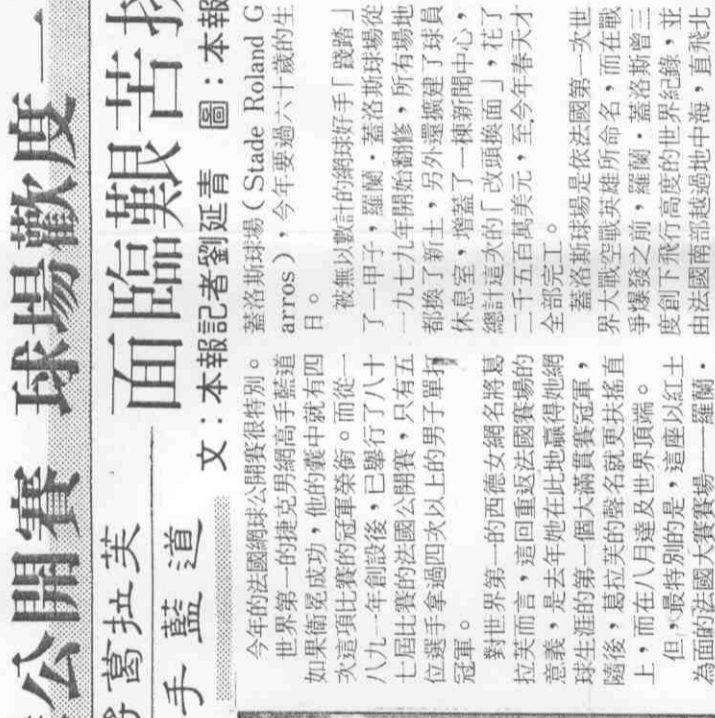 公開賽 球場歡度一
葛拉芙
手藍道
面臨艱苦
文：本報記者劉延青 圖：本報
今年的法國網球公開賽很特別。
世界第一的捷克男網高手藍道
如果衛冕成功，他的囊中就有四
次這項比賽的冠軍榮銜。而從一
八九一年創設後，已舉行了八十
七屆比賽的法國公開賽，只有五
位選手拿過四次以上的男子單打
冠軍。
對世界第一的西德女網名將葛
拉芙而言，這回重返法國賽場的
意義，是去年她在此地贏得她網
球生涯的第一個大滿貫賽冠軍，
隨後，葛拉芙的聲名就更扶搖直
上，而在八月達及世界頂端。
但，最特別的是，這座以紅土
為面的法國大賽賽場——羅蘭．
蓋洛斯球場（Stade Roland G
arros），今年要過六十歲的生
日。
被無以數計的網球好手「踐踏」
了一甲子，羅蘭．蓋洛斯球場從
一九七九年開始翻修，所有場地
都換了新土，另外還擴建了球員
休息室，增蓋了一棟新聞中心，
總計這次的「改頭換面」，花了
二千五百萬美元，至今年春天才
全部完工。
蓋洛斯球場是依法國第一次世
界大戰空戰英雄所命名，而在戰
爭爆發之前，羅蘭．蓋洛斯曾三
度創下飛行高度的世界紀錄，並
由法國南部越過地中海，直飛北